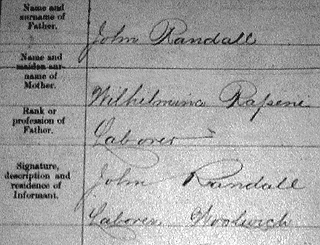 Name and
surname of
Father.
John Randall
Name and
maiden sur-
name of
Mother.
Wilhelmina Rapsene
Rank or
profession of
Father.
Laborer
Signature,
description and
residence of
Informant.
John Randall
Laborer, Woolwich